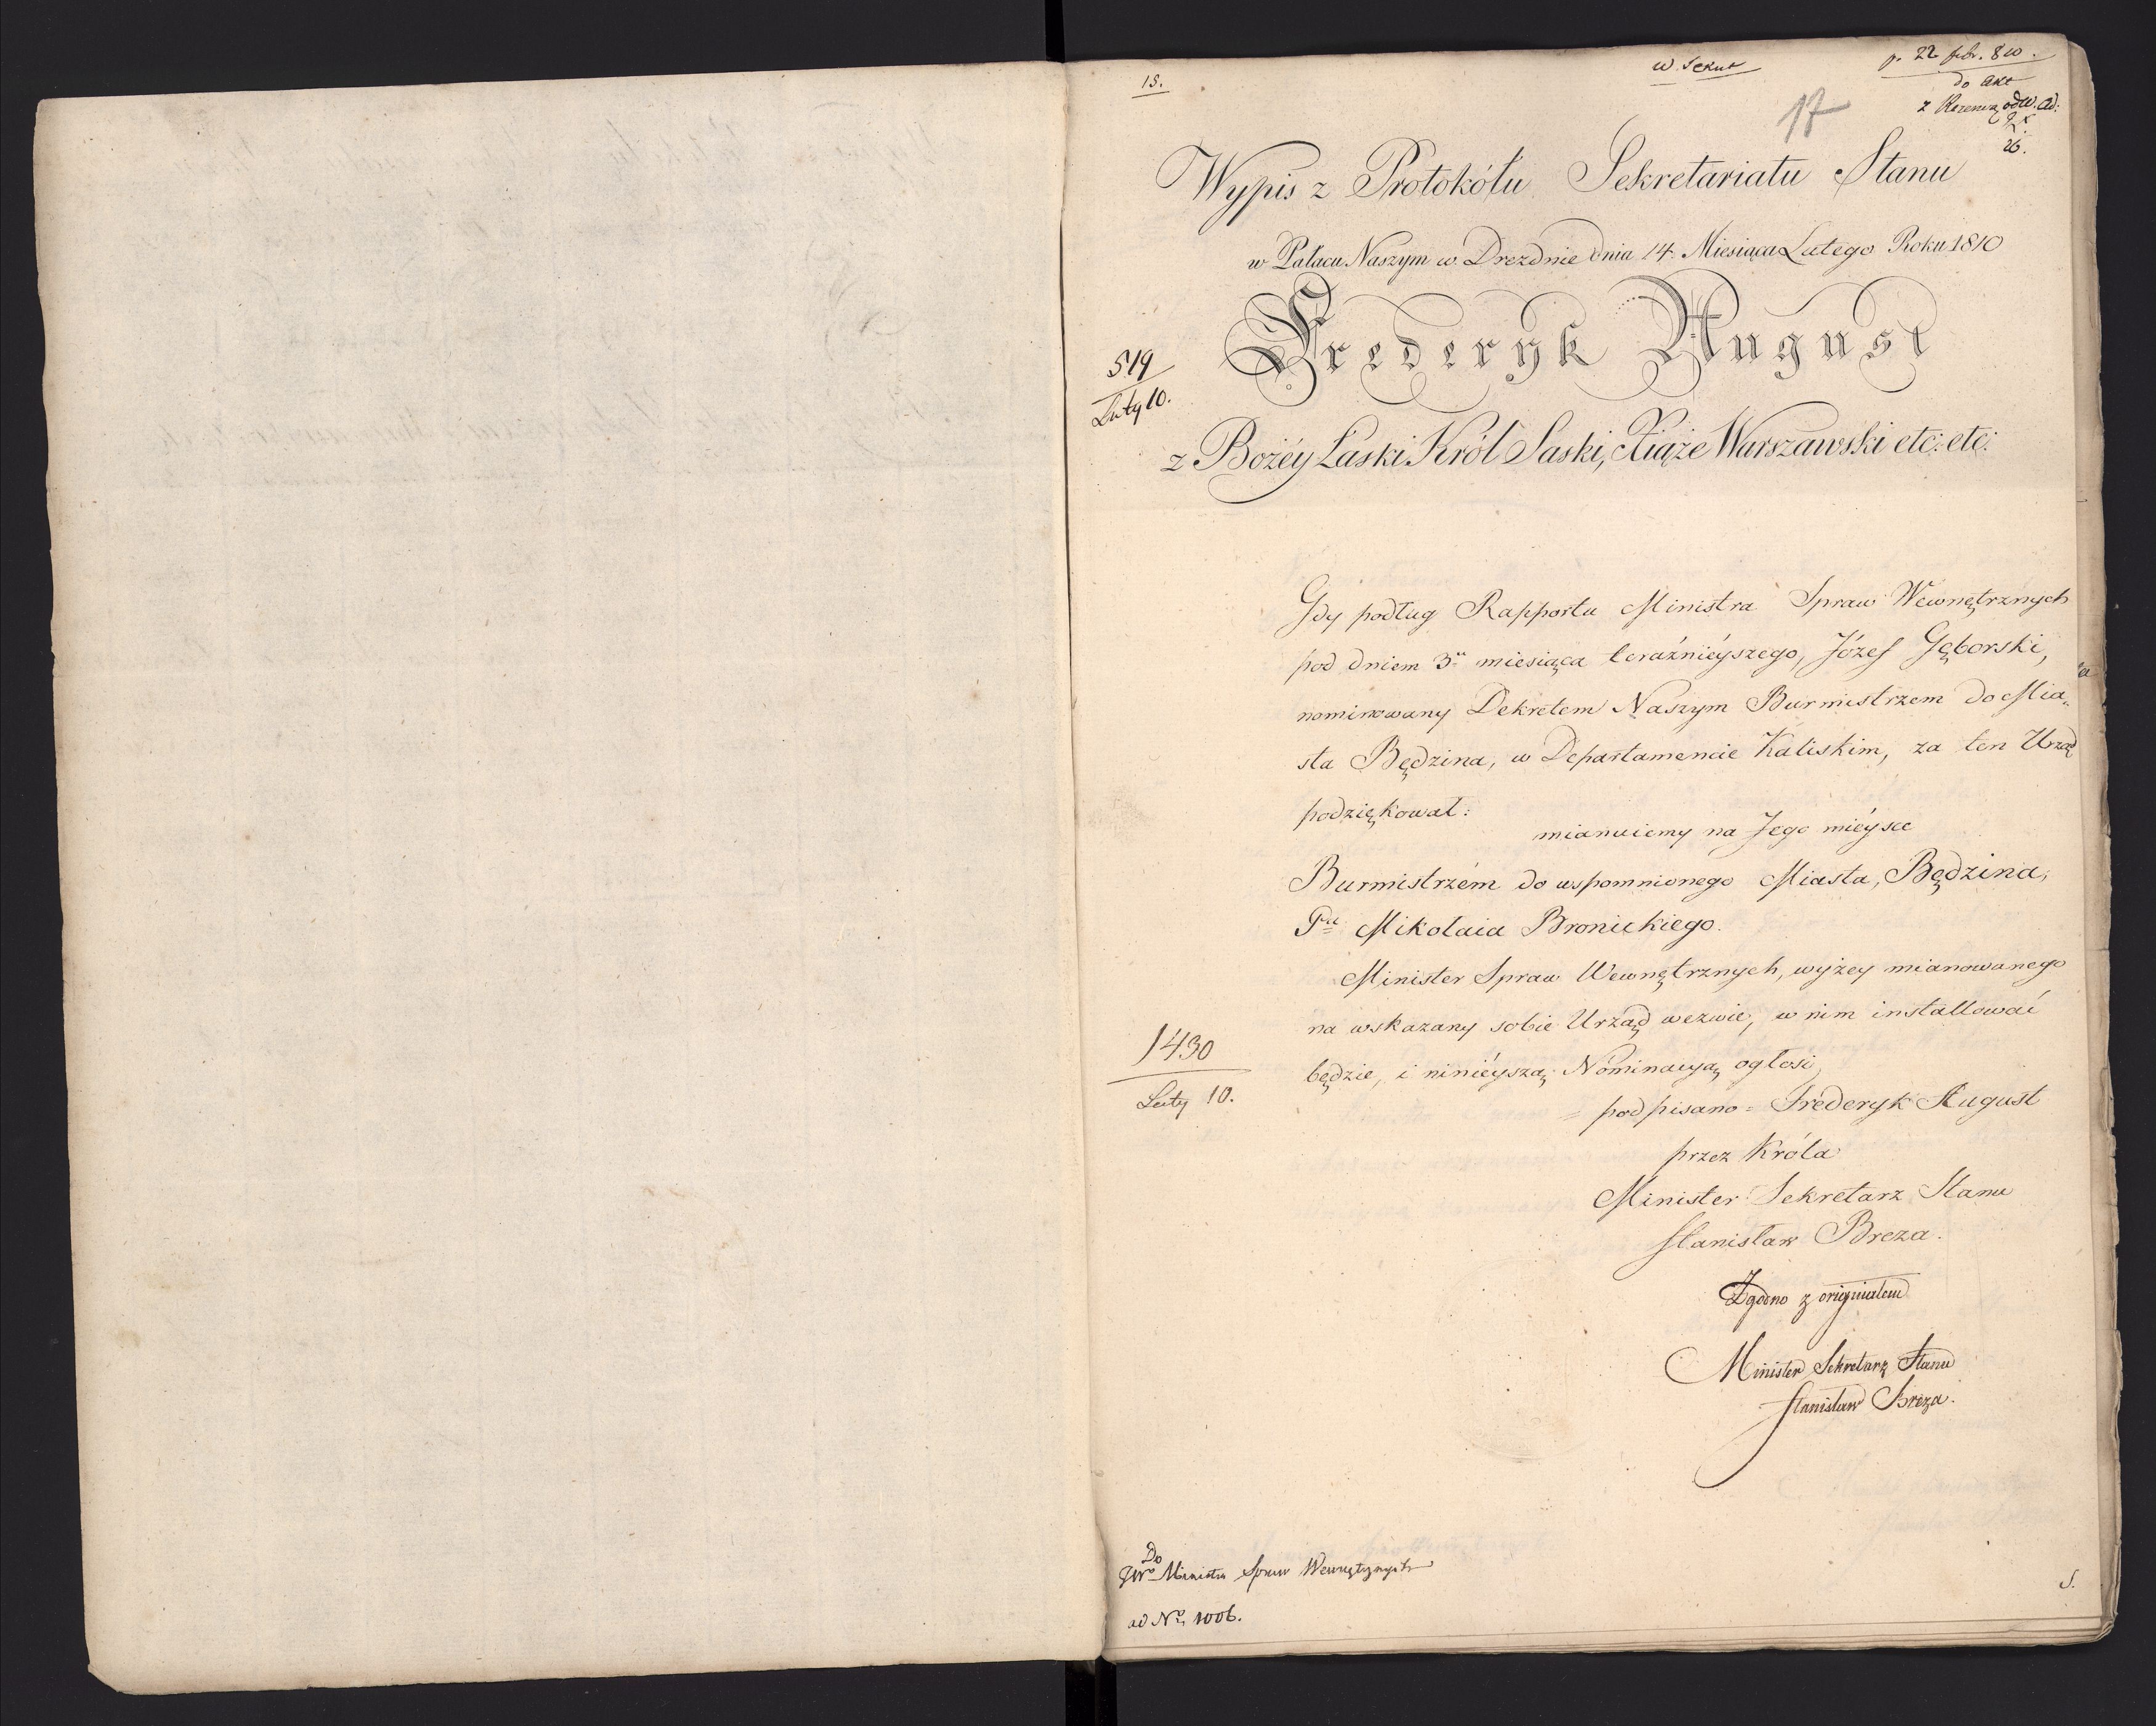 15.
w. Sekret
p. 22 febr. 810.
do akt
z
26.
17
Wypis z Protokółu Sekretariatu Stanu
w Pałacu Naszym w Dreźdnie dnia 14. Miesiąca Lutego Roku 1810
Frederyk August
519
Luty 10.
z Bożéy Łaski Król Saski, Xiąże Warszawski etc: etc:
Gdy podług Rapportu Ministra Spraw Wewnętrznych
pod dniem 3. miesiąca teraźnieyszego, Józef Gęborski,
nominowany Dekretem Naszym Burmistrzem do Mia„
sta Będzina, w Departamencie Kaliskim, za ten Urząd
podziękował:
mianuiemy na Jego miéysce
Burmistrzem do wspomnionego Miasta, Będzina,
Pa Mikołaia Bronickiego.
Minister Spraw Wewnętrznych, wyżey mianowanego
na wskazany sobie Urząd wezwie, w nim installować
będzie, i ninieyszą Nominacyą ogłosi,
1430
Luty 10.
= podpisano = Fréderyk August
przez Króla
Minister Sekretarz Stanu
Stanisław Breza.
Zgodno z oryginałem
Minister Sekretarz Stanu
Stanisław Breza.
Do
JWo Ministra Spraw Wewnętrznych
ad No 1006.
S.